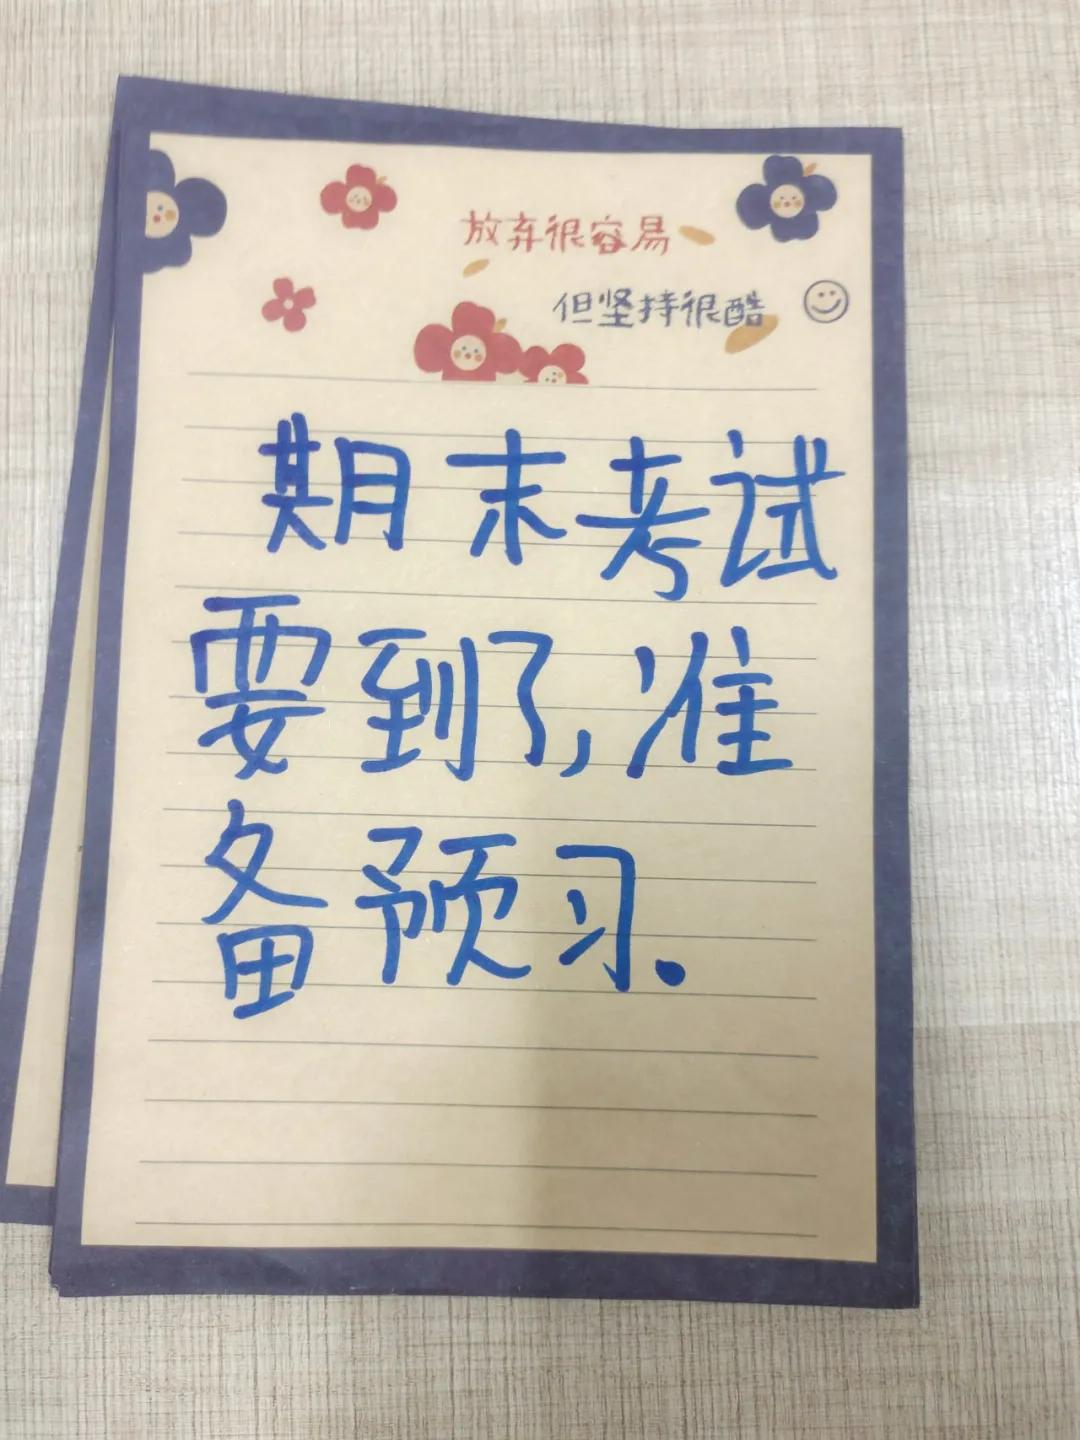 放弃很容易
但坚持很酷
期末考试
要到了,准
备预习.